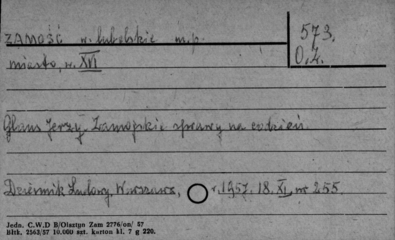 ZAMOŚĆ w. lubelskie m.p.
573.
miasto, w. XVI
O.Z.
Glans Jerzy Zamojskie sprawy na codzień.
Dziennik Ludowy, Warszawa, r. 1957. 18. XI, nr 255.
Jedn. C.W.D B/Olsztyn Zam 2776/on/ 57
Błtk. 2563/57 10.000 szt. karton kl. 7 g 220.